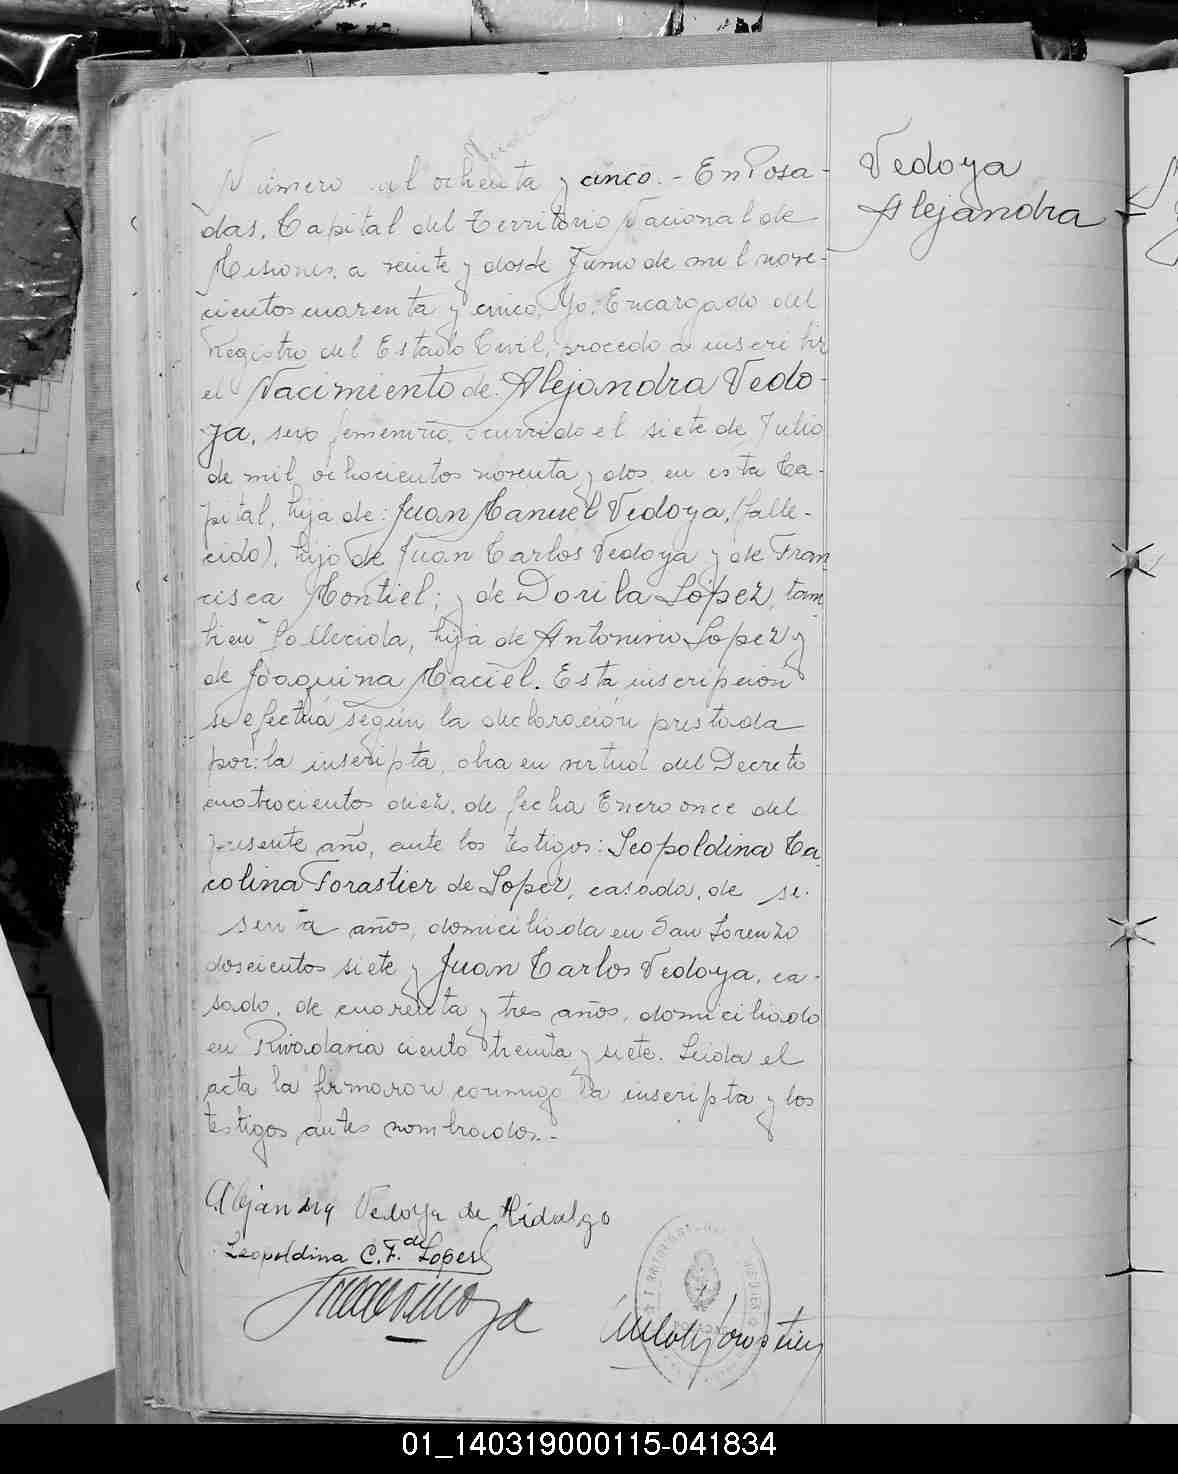 Vedoya
Alejandra
Número ochenta y cinco. - En Posa-
das, Capital del Territorio Nacional de
Misiones, a veinte y dos de Junio de mil nove-
cientos cuarenta y cinco, Yo, Encargado del
Registro del Estado Civil, procedo a inscribir
el Nacimiento de Alejandra Vedo-
ya, sexo femenino, ocurrido el siete de Julio
de mil ochocientos noventa y dos en esta Ca-
pital, hija de: Juan Manuel Vedoya, (falle-
cido), hijo de Juan Carlos Vedoya y de Fran
cisca Montiel; y de Dorila López, tam
bien fallecida, hija de Antonino Lopez y
de Joaquina Maciel. Esta inscripción
se efectúa según la declaración prestada
por: la inscripta, obra en virtud del Decreto
cuatrocientos diez, de fecha Enero once del
presente año, ante los testigos: Leopoldina Ca
rolina Forastier de Lopez, casada, de se-
senta años, domiciliada en San Lorenzo
doscientos siete y Juan Carlos Vedoya, ca-
sado, de cuarenta y tres años, domiciliado
en Rivadavia ciento treinta y siete. Leida el
acta la firmaron conmigo la inscripta y los
testigos antes nombrados.-
Alejandra Vedoya de Hidalgo
Leopoldina C. F. de Lopez
01_140319000115-041834